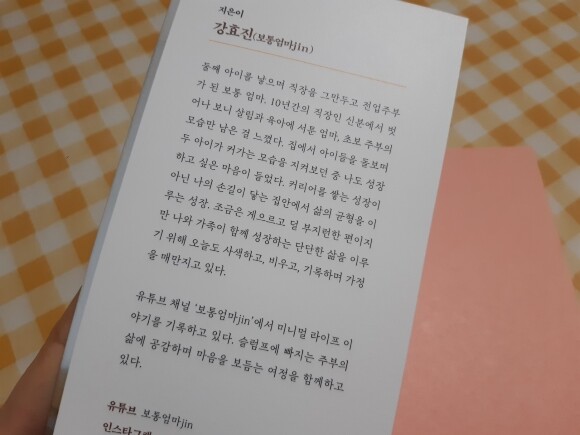 지은이
강효진(보통엄마jin)
둘째 아이를 낳으며 직장을 그만두고 전업주부
가 된 보통 엄마. 10년간의 직장인 신분에서 벗
어나 보니 살림과 육아에 서툰 엄마, 초보 주부의
모습만 남은 걸 느꼈다. 집에서 아이들을 돌보며
두 아이가 커가는 모습을 지켜보던 중 나도 성장
하고 싶은 마음이 들었다. 커리어를 쌓는 성장이
아닌 나의 손길이 닿는 집안에서 삶의 균형을 이
루는 성장. 조금은 게으르고 덜 부지런한 편이지
만 나와 가족이 함께 성장하는 단단한 삶을 이루
기 위해 오늘도 사색하고, 비우고, 기록하며 가정
을 매만지고 있다.
유튜브 채널 '보통엄마jin'에서 미니멀 라이프 이
야기를 기록하고 있다. 슬럼프에 빠지는 주부의
삶에 공감하며 마음을 보듬는 여정을 함께하고
있다.
유튜브 보통엄마jin
인스타그램